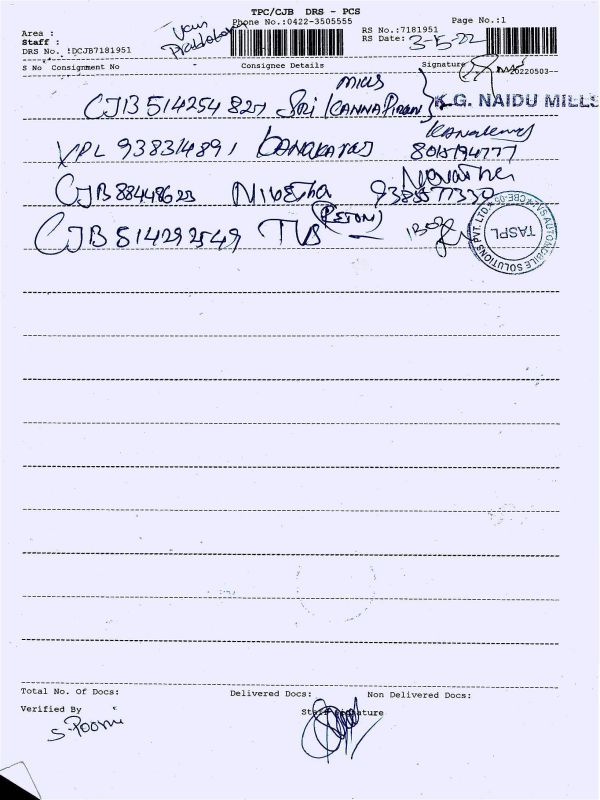 TPC/CJB DRS - PCS
Phone No.:0422-3505555
Page No.:1
Area :
Staff :
DRS No. :DCJB7181951
RS No.:7181951
RS Date: 3-5-22
20220503--
S No Consignment No
Consignee Details
Signature
mills
CJB 514254827 Sri Kanna Piran
K.G. NAIDU MILLS
VPL 938314891 Kanakaraj
8015194777
CJB 88448623 Nivetha
9385577339
CJB 514292549 TVS
TASPL
TVS AUTOMOBILE SOLUTIONS PVT. LTD.
Total No. Of Docs:
Delivered Docs:
Non Delivered Docs:
Verified By
S. Poorni
Staff Signature